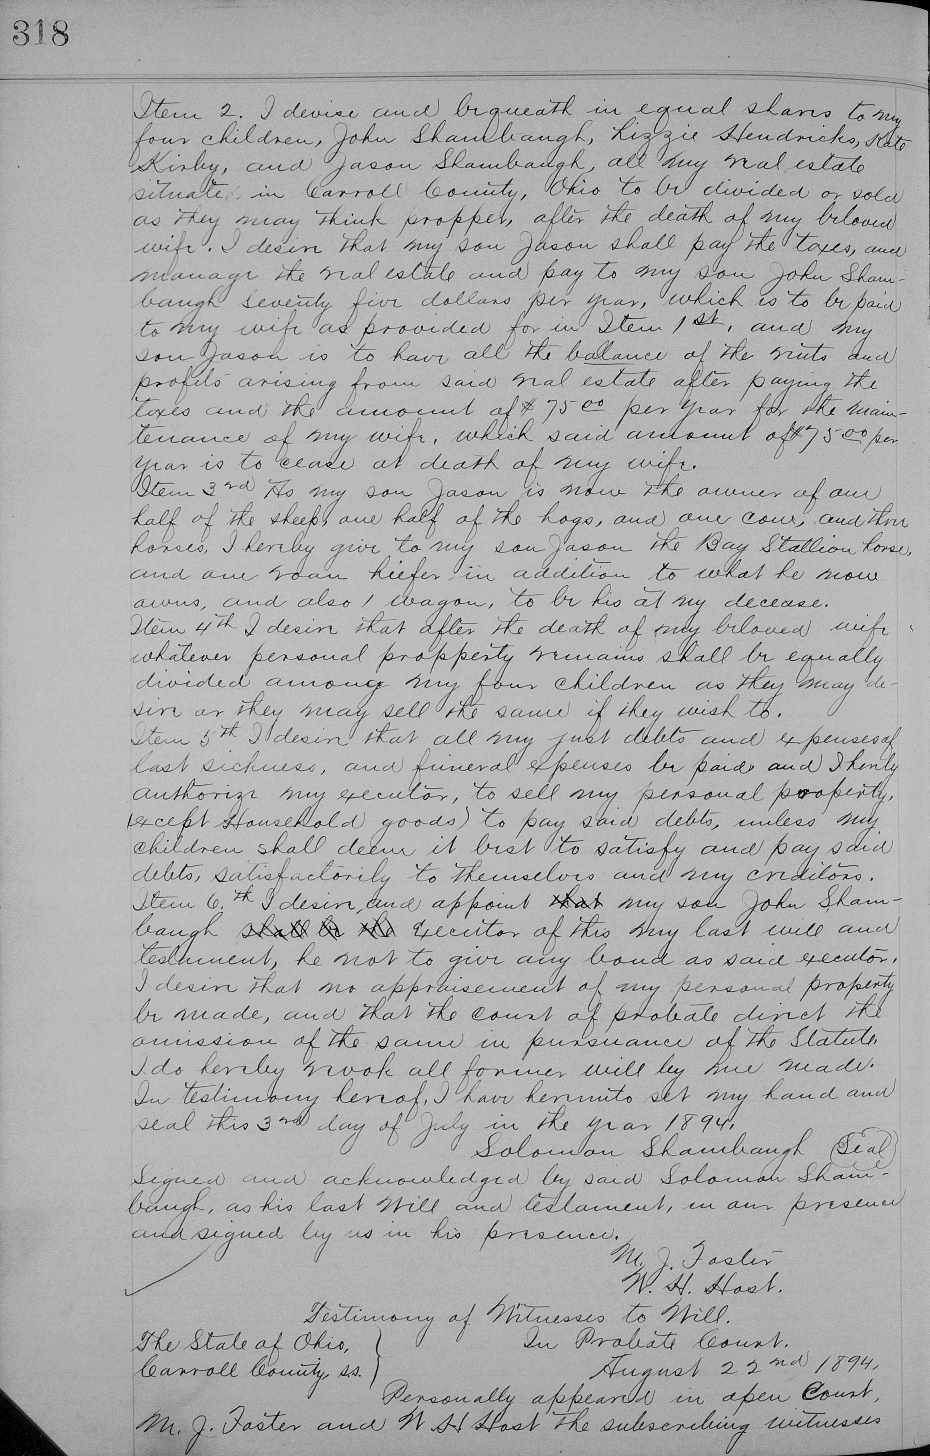 318
Item 2. I devise and bequeath in equal shares to my
four children, John Shambaugh, Lizzie Hendricks, Kate
Kirby, and Jason Shambaugh, all my real estate
situate in Carroll County, Ohio to be divided or sold
as they may think propper, after the death of my beloved
wife. I desire that my son Jason shall pay the taxes, and
manage the real estate and pay to my son John Sham-
baugh Seventy five dollars per year, which is to be paid
to my wife as provided for in Item 1st, and my
son Jason is to have all the balance of the rents and
profits arising from said real estate after paying the
taxes and the amount of $75 00 per year for the main-
tenance of my wife, which said amount of $75 00 per
year is to cease at death of my wife.
Item 3rd As my son Jason is now the owner of one
half of the sheep, one half of the hogs, and one cow, and three
horses, I hereby give to my son Jason the Bay Stallion horse,
and one roan hiefer in addition to what he now
owns, and also 1 wagon, to be his at my decease.
Item 4th I desire that after the death of my beloved wife
whatever personal propperty remains shall be equally
divided among my four children as they may de-
sire or they may sell the same if they wish to.
Item 5th I desire that all my just debts and expenses of
last sickness, and funeral expenses be paid and I hereby
authorize my executor, to sell my personal property,
(except Household goods) to pay said debts, unless my
children shall deem it best to satisfy and pay said
debts, satisfactorily to themselves and my creditors.
Item 6.th I desire, and appoint that my son John Sham-
baugh shall be the Executor of this my last will and
testament, he not to give any bond as said executor.
I desire that no appraisement of my personal property
be made, and that the court of probate direct the
omission of the same in pursuance of the Statute.
I do hereby revoke all former will by me made.
In testimony hereof, I have hereunto set my hand and
seal this 3rd day of July in the year 1894.
Solomon Shambaugh (Seal)
Signed and acknowledged by said Solomon Sham-
baugh, as his last Will and testament, in our presence
and signed by us in his presence.
M. J. Foster
W. H. Host.
Testimony of Witnesses to Will.
The State of Ohio, In Probate Court.
Carroll County, ss. August 22nd 1894.
Personally appeared in open Court,
M. J. Foster and W. H Host the subscribing witnesses